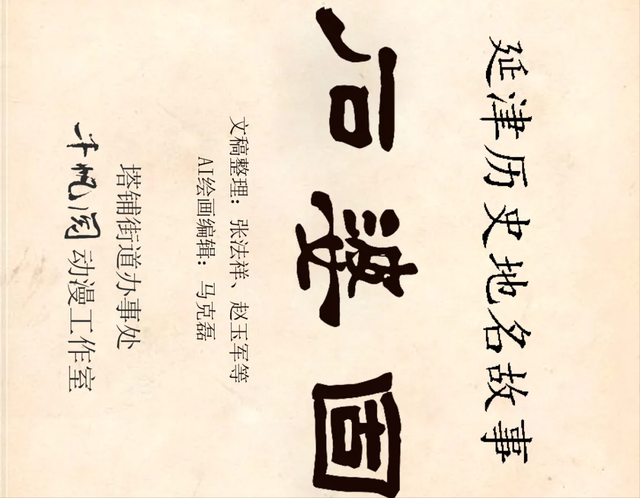 延津历史地名故事
石婆固
文稿整理：张法祥、赵玉军等
AI绘画编辑：马克磊
塔铺街道办事处
动漫工作室